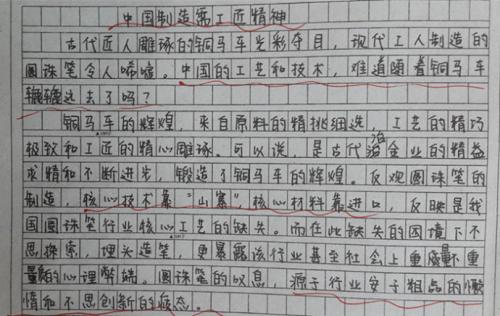 中国制造需工匠精神
古代匠人雕琢的铜马车光彩夺目，现代工人制造的
圆珠笔令人唏嘘。中国的工艺和技术，难道随着铜马车
辘辘远去了吗？
铜马车的辉煌，来自原料的精挑细选，工艺的精巧
极致和工匠的精心雕琢。可以说，是古代冶金业的精益
求精和不断进步，锻造了铜马车的辉煌。反观圆珠笔的
制造，核心技术靠“山寨”，核心材料靠进口，反映是我
国圆珠笔行业核心工艺的缺失。而在此缺失的困境下不
思探索，埋头造笔，更暴露该行业甚至社会上重量不重
质的心理弊端。圆珠笔的叹息，源于行业安于粗点的
惰和不思创新的疲态。